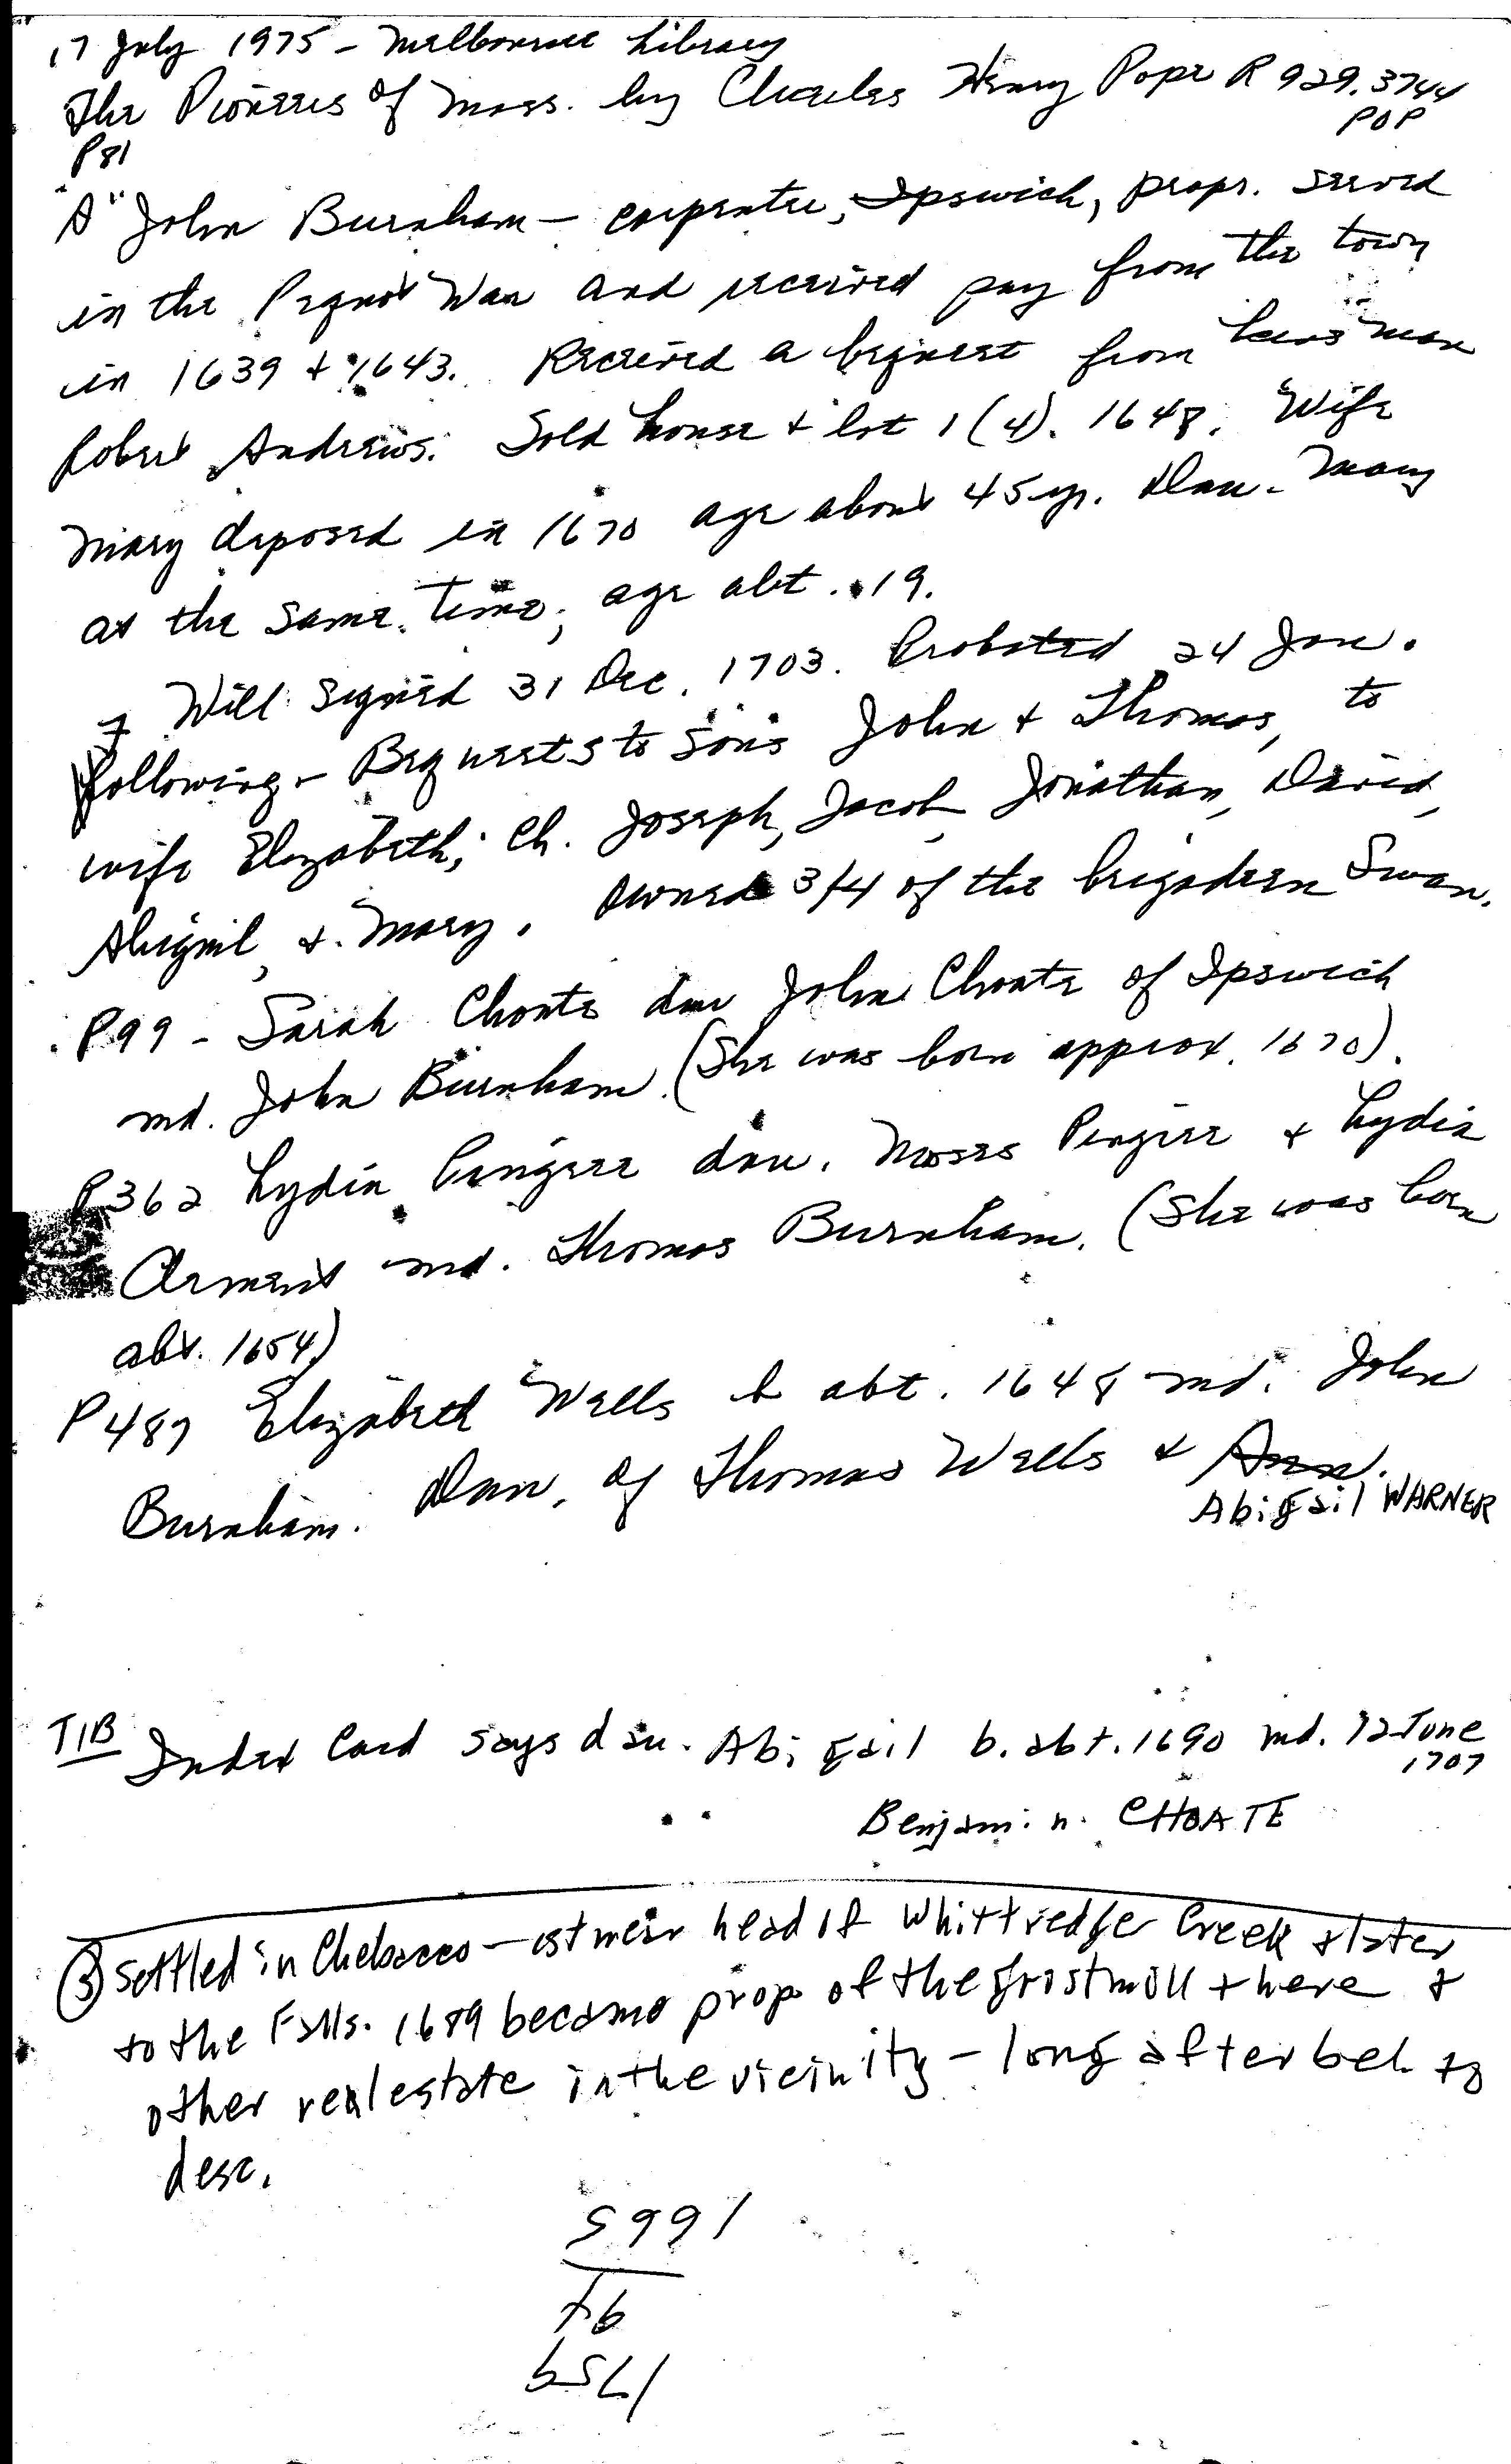 17 July 1975 - Melbourne Library
The Pioneers of Mass. by Charles Henry Pope R 929.3744
POP
P81
"A" John Burnham - carpenter, Ipswich, propr. served
in the Pequot War and received pay from the town
in 1639 + 1643. Received a bequest from kinsman
Robert Andrews. Sold house + lot 1 (4). 1648. Wife
Mary deposed in 1670 age about 45 yr. Dau. Mary
at the same time, age abt. 19.
Will signed 31 Dec. 1703. Probated 24 Jan.
following - Bequests to sons John + Thomas, to
wife Elizabeth; Ch. Joseph, Jacob, Jonathan, David,
Abigail, + Mary. Owned 3/4 of the brigadeen Swan.
P99 - Sarah Choate dau John Choate of Ipswich
md. John Burnham. (She was born approx. 1670).
P362 Lydia Pengree dau. Moses Pengree + Lydia
Clement md. Thomas Burnham. (She was born
abt. 1654)
P487 Elizabeth Wells b abt. 1648 md. John
Burnham. Dau. of Thomas Wells + Ann.
Abigail WARNER
TIB Index Card says dau. Abigail b. abt. 1690 md. 12 June
1707
Benjamin CHOATE
(3) settled in Chebacco - 1st near head of Whittredge Creek + later
to the Falls. 1689 became prop of the gristmill there +
other real estate in the vicinity - long after bel. to
desc.
1759
94
1665